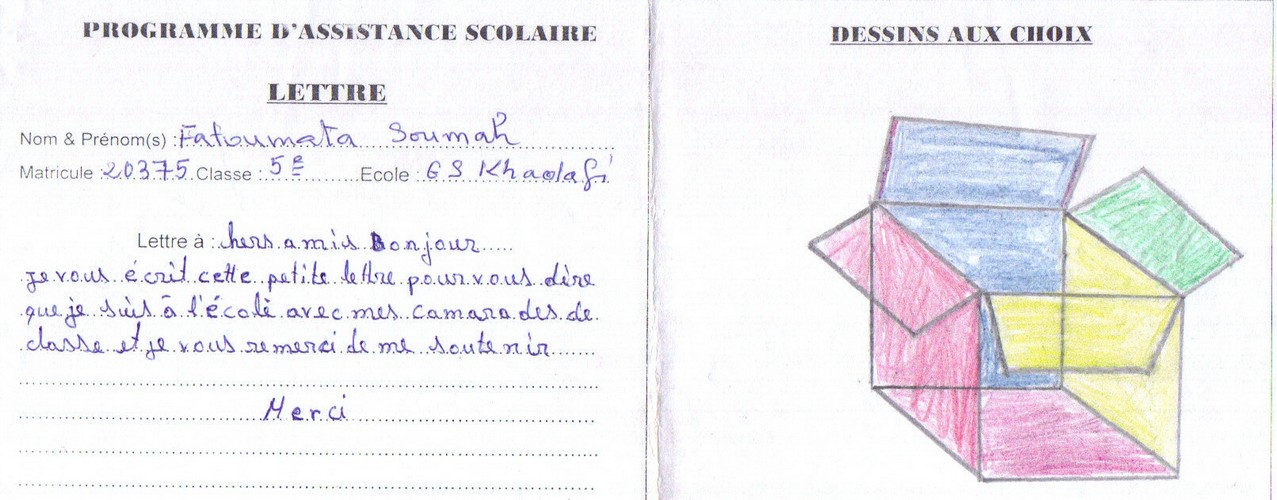 PROGRAMME D'ASSISTANCE SCOLAIRE
LETTRE
Nom & Prénom(s) : Fatoumata Soumah
Matricule : 20375 Classe : 5e Ecole : GS Khaolafi
Lettre à : chers amis Bonjour
je vous écrit cette petite lettre pour vous dire
que je suis à l'école avec mes camarades de
classe et je vous remerci de me soutenir
Merci
DESSINS AUX CHOIX